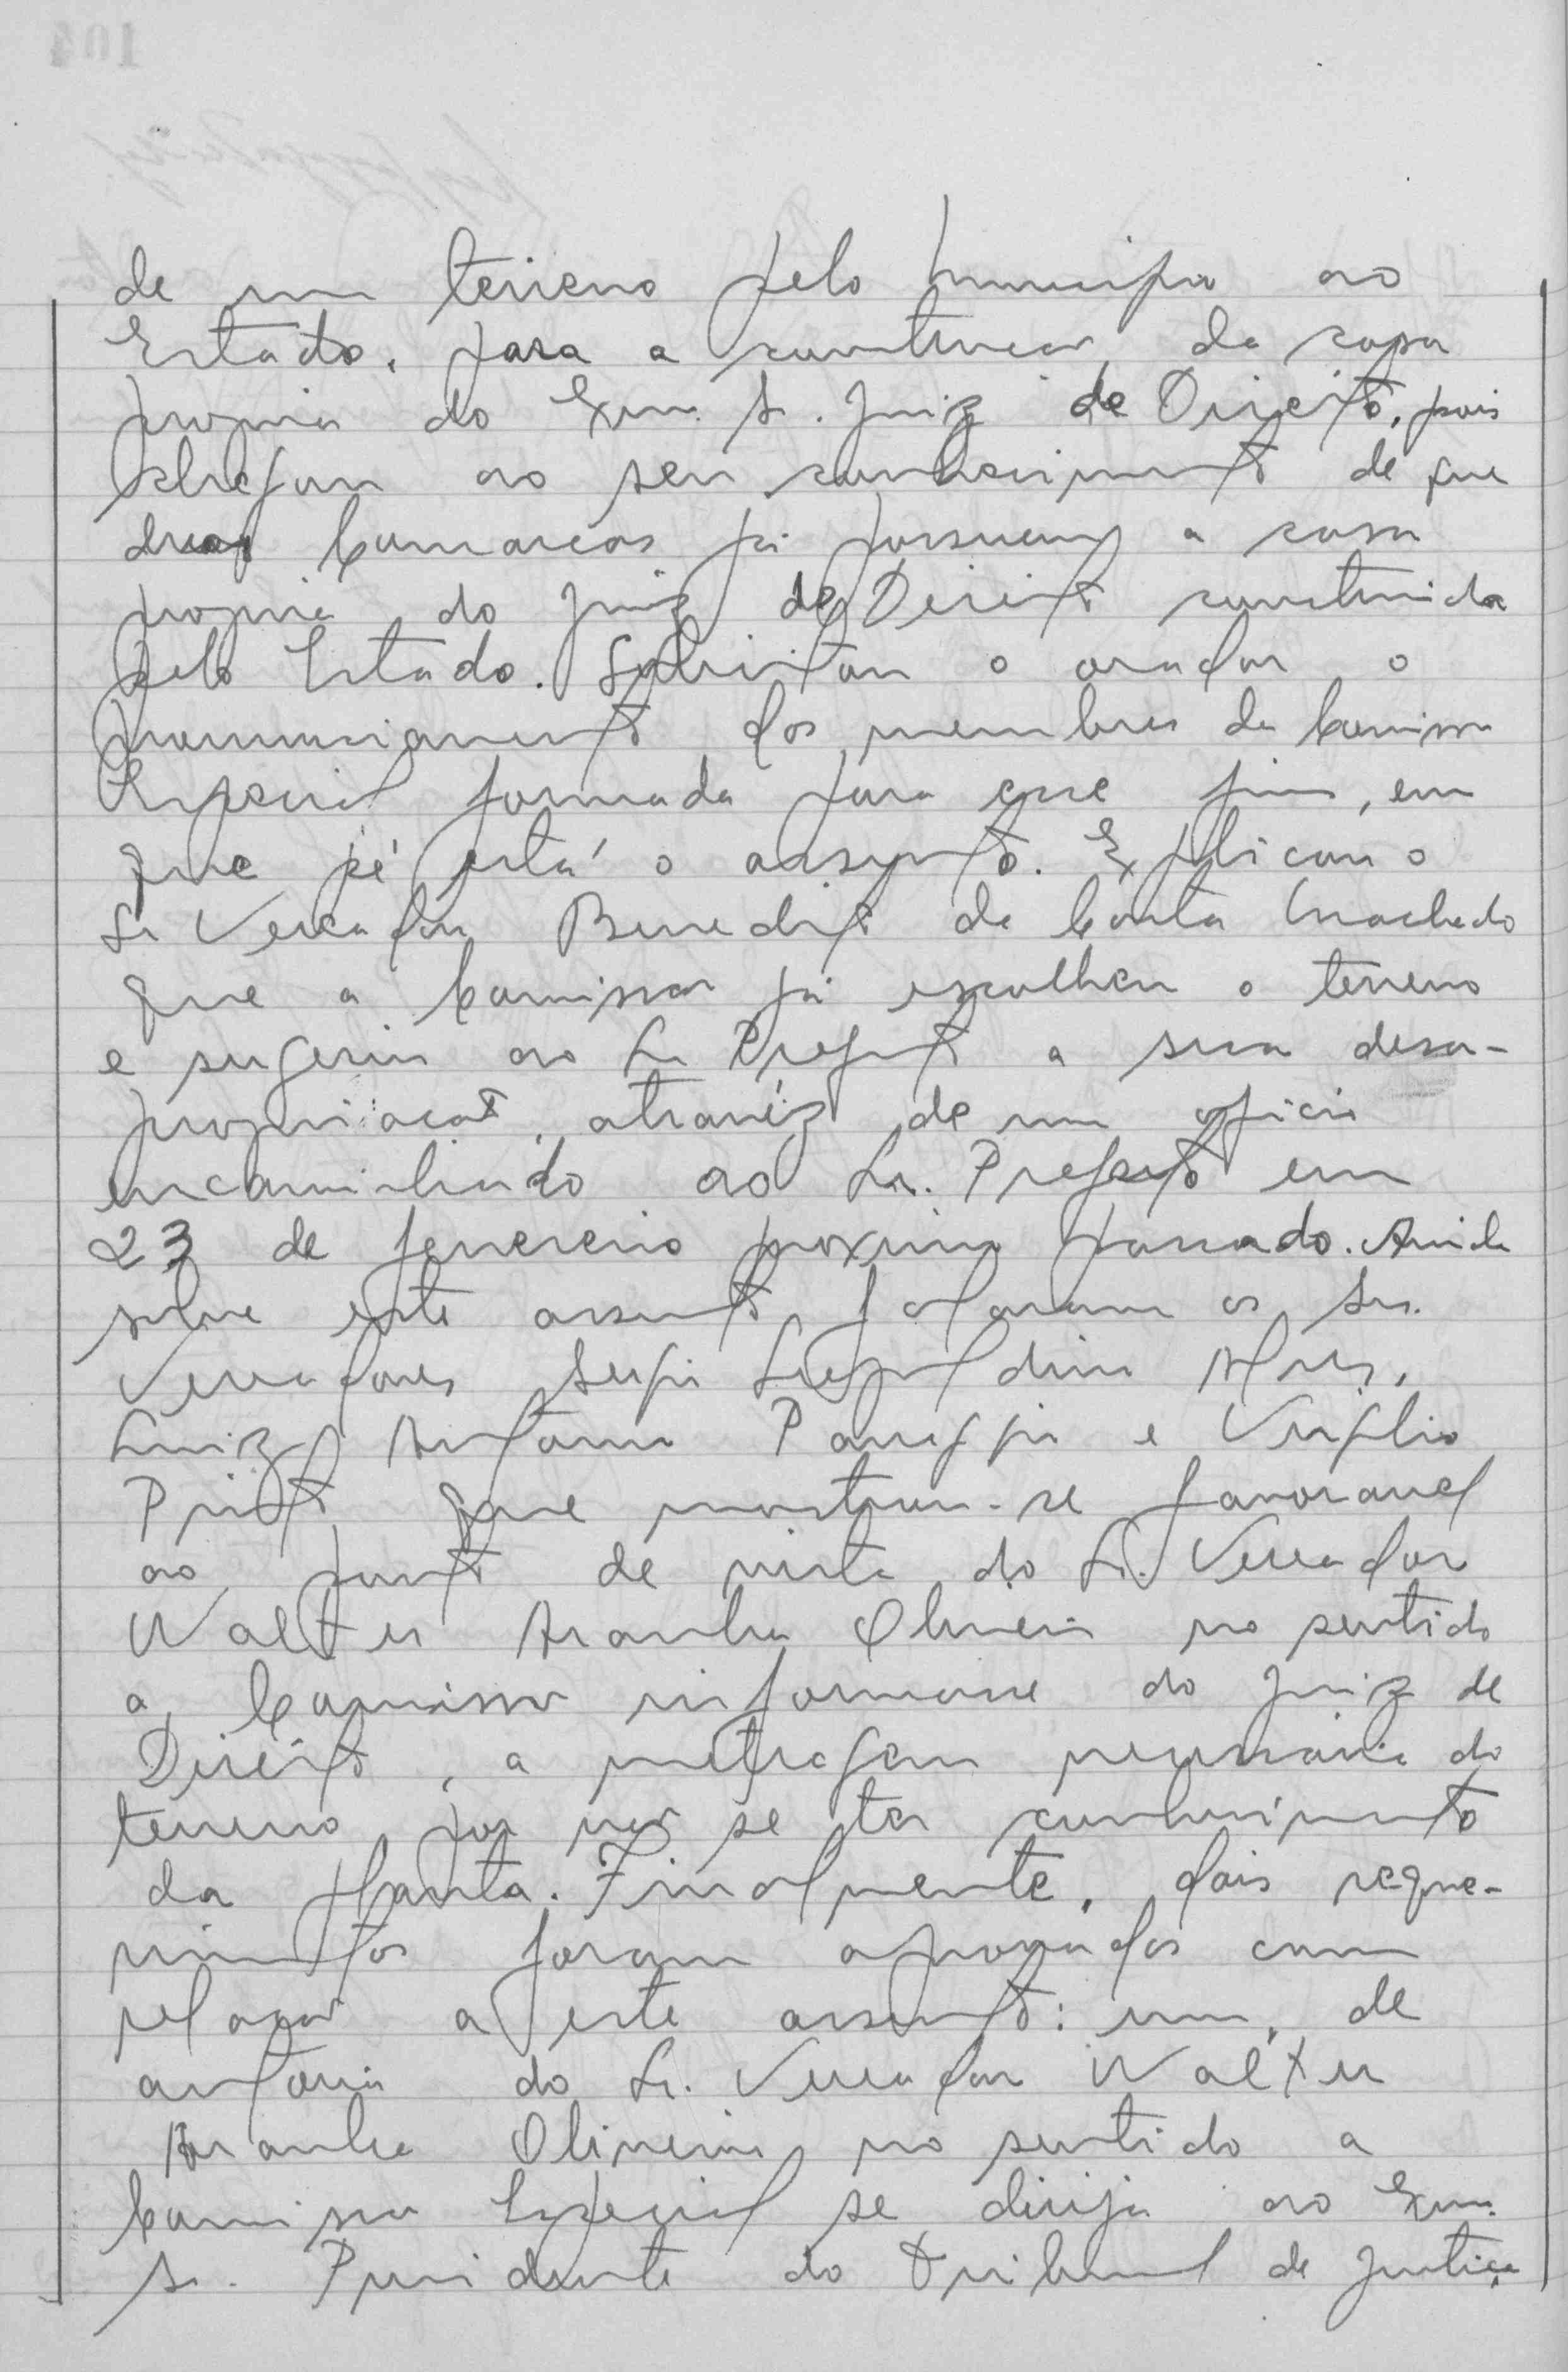 de um terreno pelo municipio ao
Estado, para a construcao da casa
propria do Exm. Sr. Juiz de Direito, pois
chegou ao seu conhecimento de que
duas Comarcas já possuem a casa
propria do Juiz de Direito construida
pelo Estado. Solicitou o orador o
pronunciamento dos membros da Comissao
Especial formada para esse fim, em
que pé está o assunto. Explicou o
Sr Vereador Benedito da Costa Machado
que a Comissao já escolheu o terreno
e sugeriu ao Sr Prefeito a sua desa-
propriacao, atravéz de um oficio
encaminhado ao Sr. Prefeito em
23 de fevereiro proximo passado. Ainda
sobre este assunto falaram os Srs.
Vereadores Sergio Leopoldino Alves,
Luiz Antonio Panuggio e Virgilio
Prioto que mostrou-se favoravel
ao ponto de vista do Sr. Vereador
Walter Aranha Oliveira no sentido
a Comissao informasse do Juiz de
Direito, a metragem necessaria do
terreno por nao se ter conhecimento
da planta. Finalmente, dois reque-
rimentos foram aprovados com
relacao a este assunto: um, de
autoria do Sr. Vereador Walter
Aranha Oliveira no sentido a
Comissao Especial se dirija ao Exm.
Sr. Presidente do Tribunal de Justiça